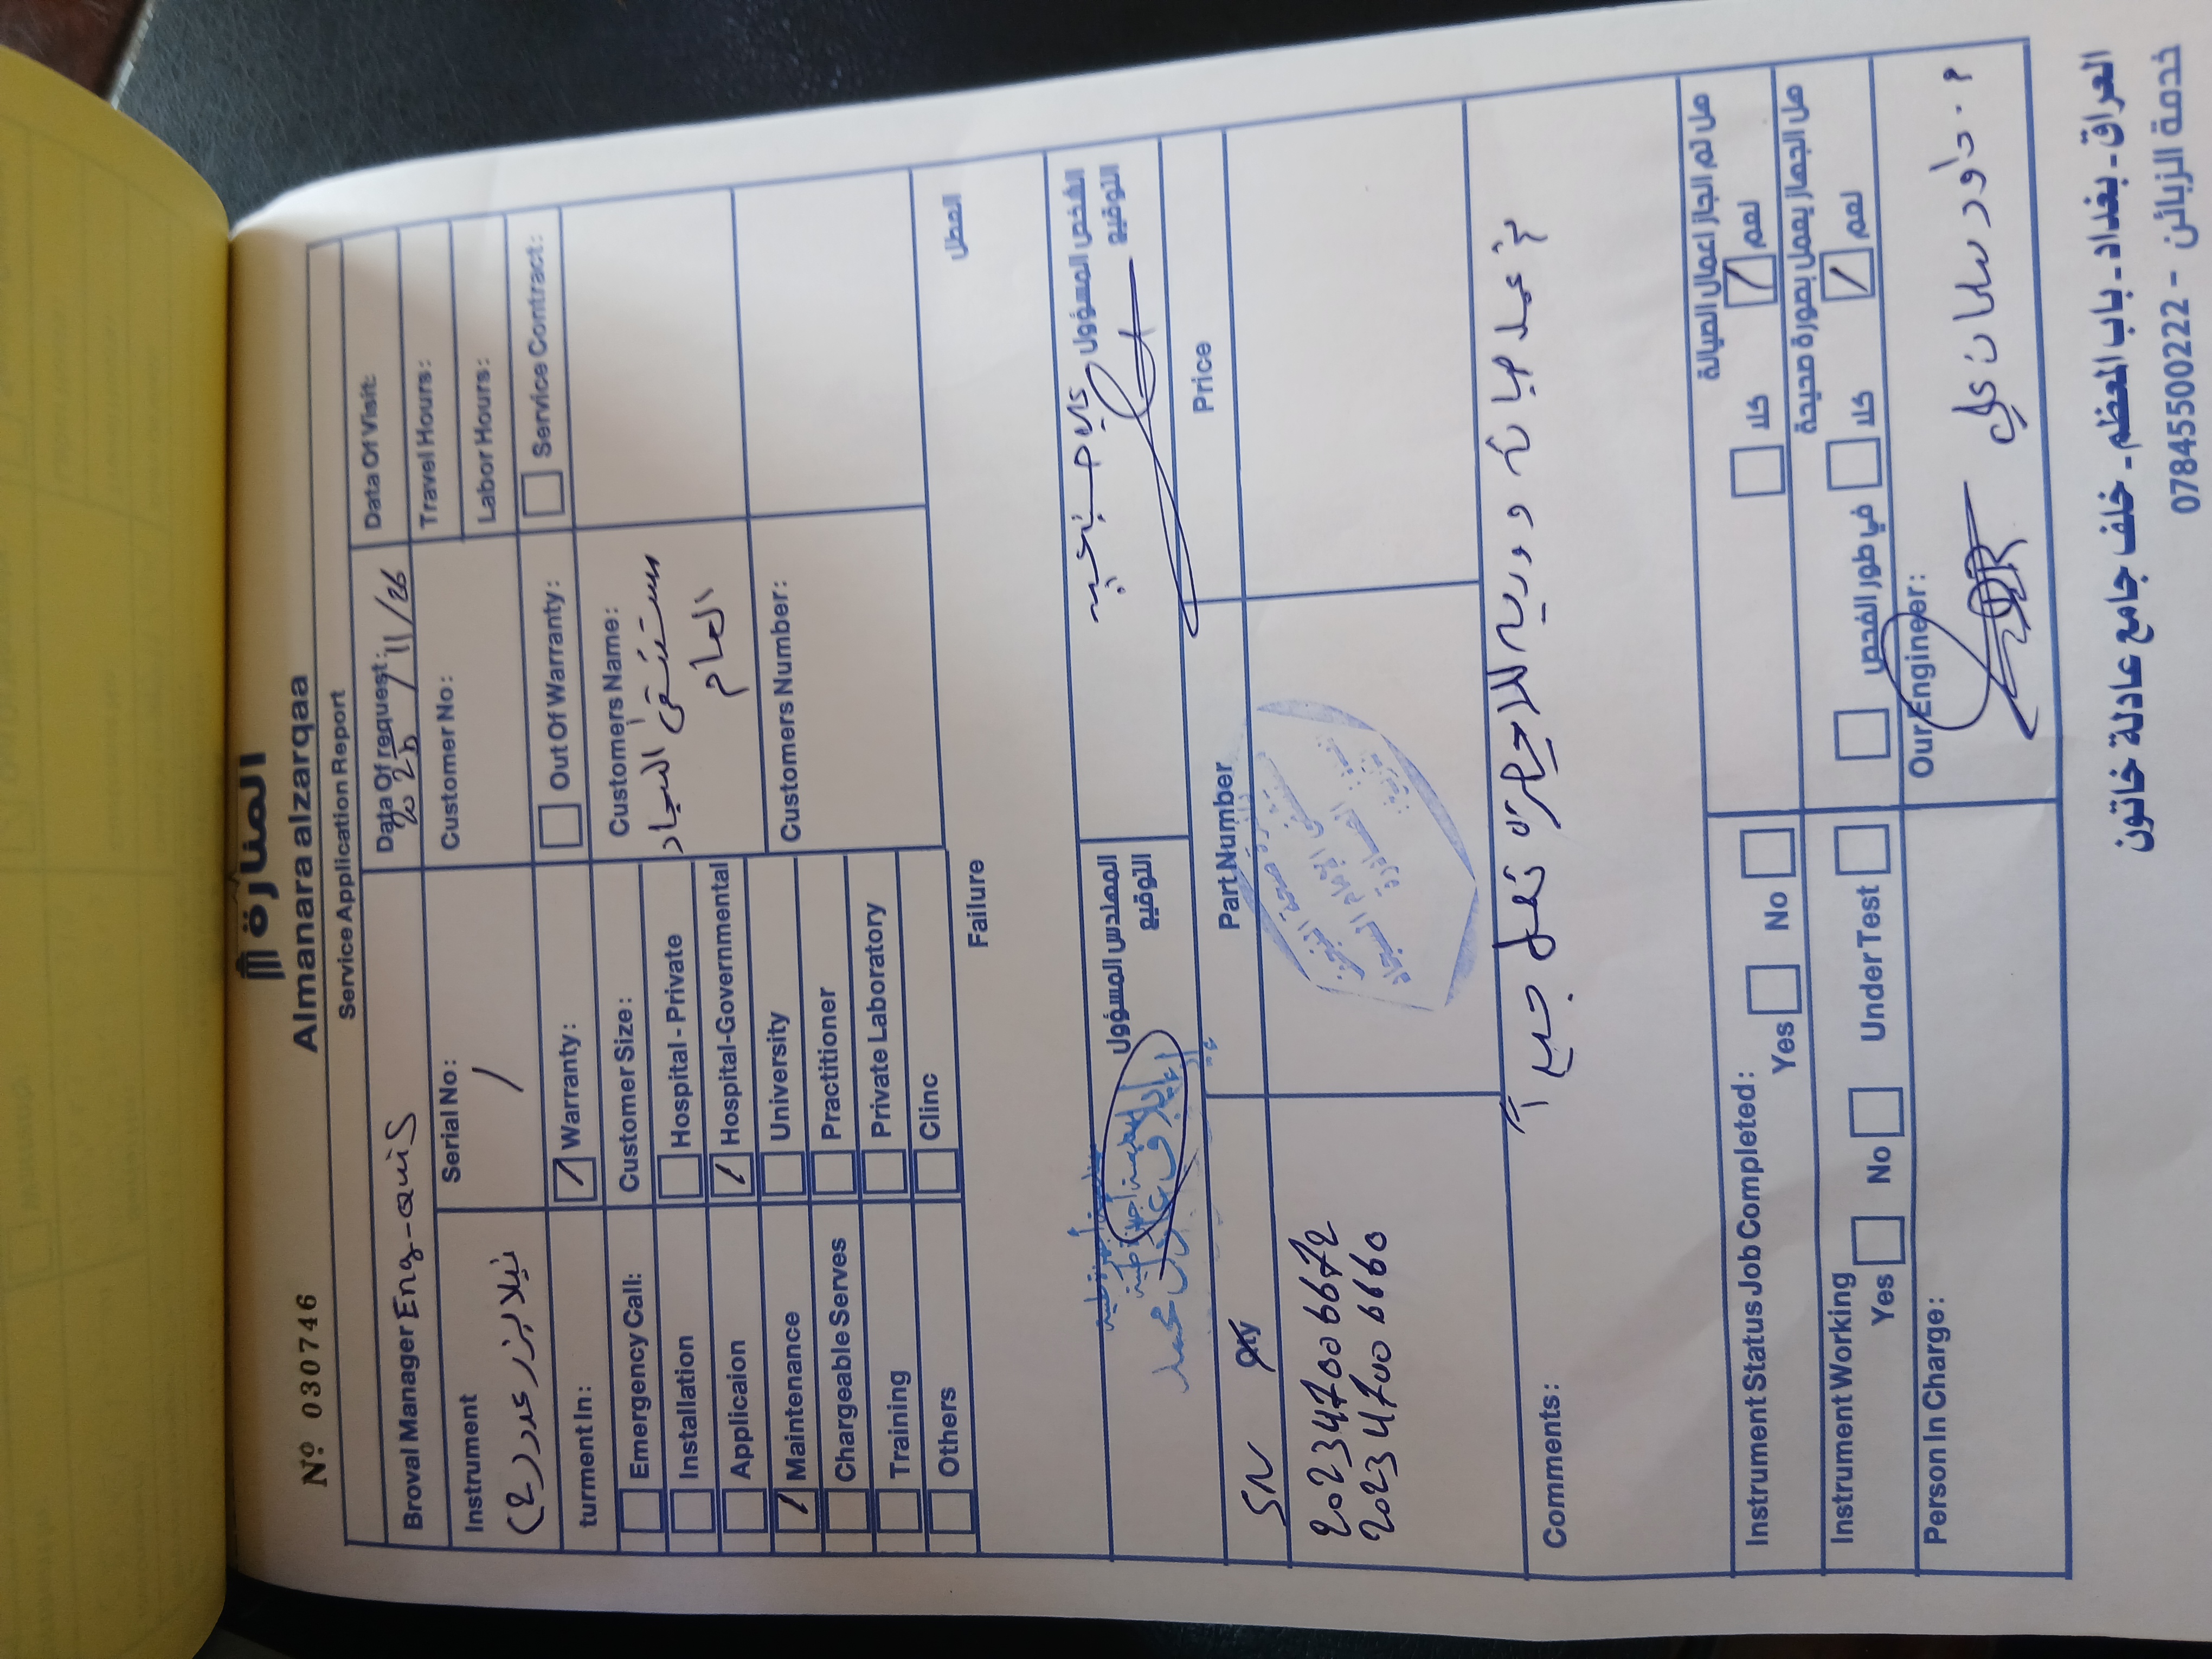 المنارة
Almanara alzarqaa
Nº 030746
Service Application Report
Broval Manager Eng-qais
Data Of request: 2025/11/26
Data Of Visit:
Travel Hours:
Labor Hours:
Instrument
نيلايزر عدد (2)
Serial No: /
Customer No:
turment In:
Warranty:
Out Of Warranty:
Service Contract:
Emergency Call:
Installation
Applicaion
Maintenance
Chargeable Serves
Training
Others
Customer Size:
Hospital - Private
Hospital-Governmental
University
Practitioner
Private Laboratory
Clinc
Customers Name:
مستشفى السجاد
العام
Customers Number:
Failure
العطل
المهندس المسؤول
التوقيع
الشخص المسؤول
التوقيع
SN
Qty
Part Number
Price
202347006672
2023470066 60
Comments:
تم عمل صيانة دورية للاجهزة تعمل جيداً
Instrument Status Job Completed:
Yes
No
هل تم انجاز اعمال الصيانة
كلا
نعم
Instrument Working
Yes
No
Under Test
هل الجهاز يعمل بصورة صحيحة
في طور الفحص
كلا
نعم
Person In Charge:
Our Engineer:
م. داود سلمان علي
العراق - بغداد - باب المعظم - خلف جامع عادلة خاتون
خدمة الزبائن - 07845500222